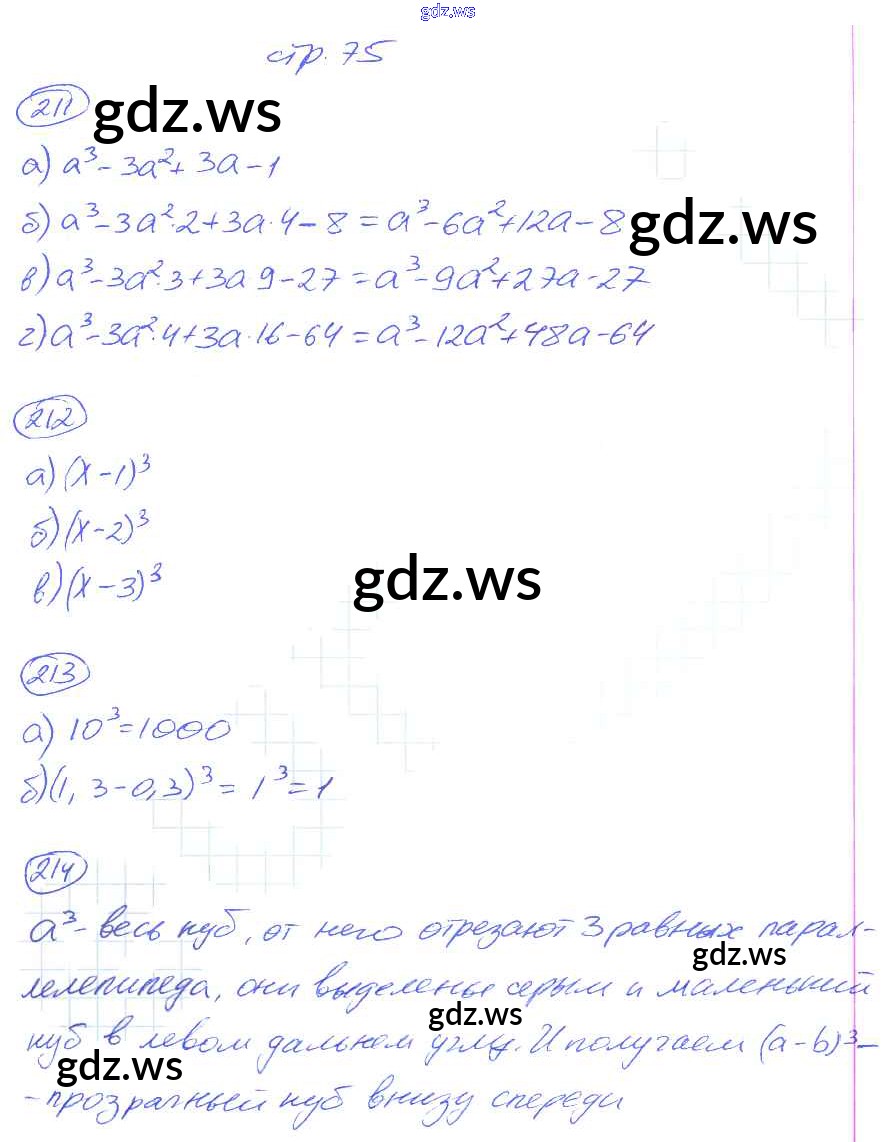 gdz.ws
стр. 75
211
gdz.ws
а) a³-3a²+3a-1
б) a³-3a²·2+3a·4-8=a³-6a²+12a-8
gdz.ws
в) a³-3a²·3+3a 9-27=a³-9a²+27a-27
г) a³-3a²·4+3a·16-64=a³-12a²+48a-64
212
а) (x-1)³
б) (x-2)³
в) (x-3)³
gdz.ws
213
а) 10³=1000
б) (1,3-0,3)³=1³=1
214
a³- весь куб, от него отрезают 3 равных парал-
gdz.ws
лелепипеда, они выделены серым и маленький
gdz.ws
куб в левом дальнем углу. И получаем (a-b)³-
gdz.ws
-прозрачный куб внизу спереди